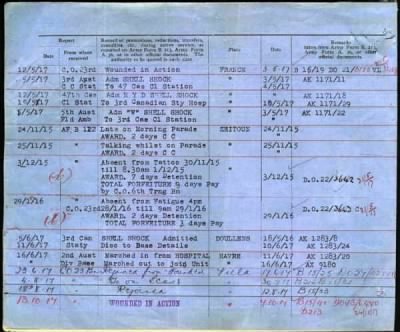 Report
Date
From whom received
Record of promotions, reductions, transfers, casualties, etc., during active service, as reported on Army Form B. 213, Army Form A. 36, or in other official documents. The authority to be quoted in each case.
Place
Date
Remarks
taken from Army Form B. 213, Army Form A. 36, or other official documents.
12/5/17 C.O. 23rd Wounded in Action FRANCE 3.5.17 B 16/19
5/5/17 3rd Aust Adm SHELL SHOCK 3/5/17 AK 1171/11
C C Stat To 47 Cas Cl Station 4/5/17
12/5/17 47th Cas Adm N Y D SHELL SHOCK 4/5/17 AK 1171/18
Cl Stat To 3rd Canadian Sty Hosp 18/5/17 AK 1171/29
8/5/17 5th Aust Adm "W" SHELL SHOCK 3/5/17 AK
Fld Amb To 3rd Cas Cl Station 3/5/17
24/11/15 AF B 122 Late on Morning Parade ZEITOUN 24/11/15
AWARD. 2 days C C
25/11/15 Talking whilst on Parade 25/11/15
AWARD. 2 days C C
3/12/15 Absent from Tattoo 30/11/15
till 8.30am 1/12/15
AWARD. 7 days Detention 3/12/15 D.O.22/
TOTAL FORFEITURE 9 days Pay
by C.O.6th Trng Bn
29/1/16 Absent from Fatigue 4pm
C.O 23rd 28/1/16 till 9am 29/1/16
AWARD. 2 days Detention 29/1/16 D.O.22/
TOTAL FORFEITURE 3 days Pay
5/6/17 3rd Can SHELL SHOCK Admitted DOULLENS 18/5/17 AK 1283/8
11/6/17 Staty Disc to Base Details 10/6/17 AK 1283/24
16/6/17 2nd Aust Marched in from HOSPITAL HAVRE 11/6/17 AK 1283/20
Div Base Marched out to join Unit 16/6/17 AK 9180
23.6.17 CO 23 Bn Rejoined from Hospital Field
Rejoined
13.10.17 WOUNDED IN ACTION